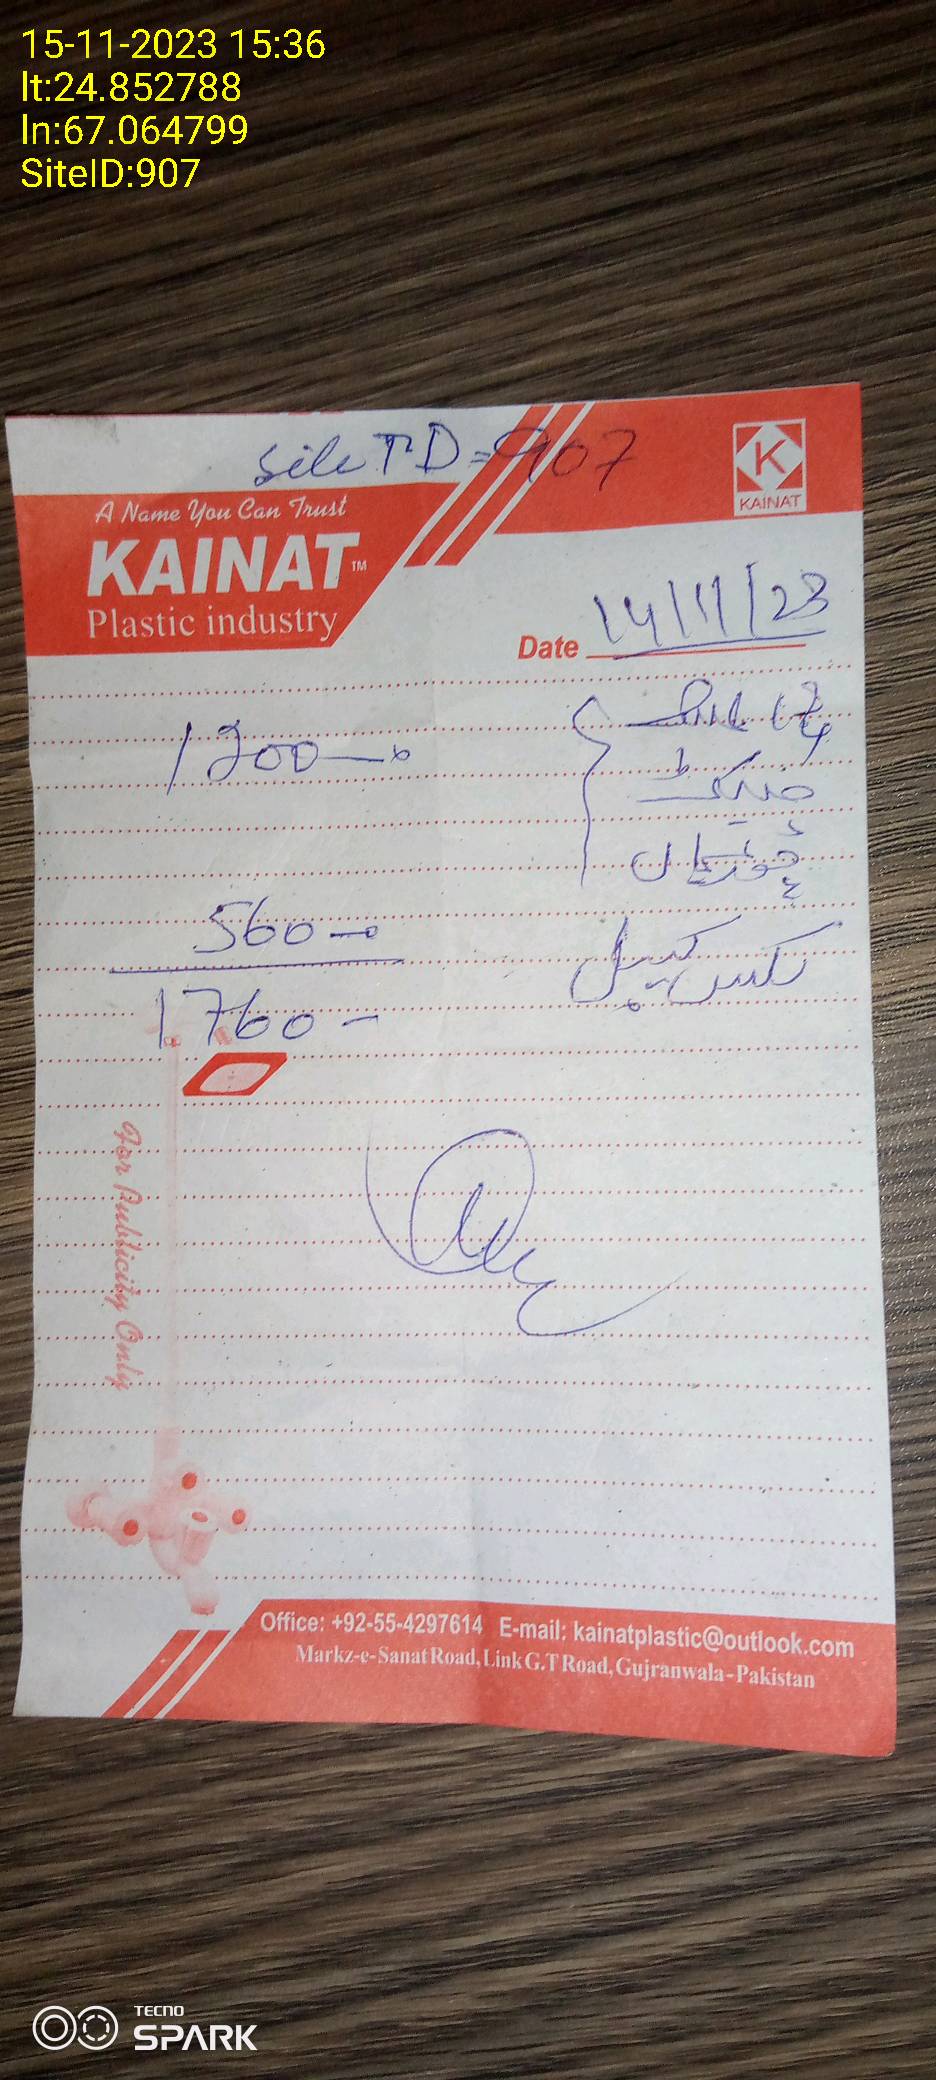 15-11-2023 15:36
lt:24.852788
ln:67.064799
SiteID:907
Site ID=907
A Name You Can Trust
KAINAT™
Plastic industry
K
KAINAT
Date 14/11/23
1200
چوڑیاں
560
1760
For Publicity Only
Office: +92-55-4297614 E-mail: kainatplastic@outlook.com
Markz-e-Sanat Road, Link G.T Road, Gujranwala-Pakistan
TECNO
SPARK